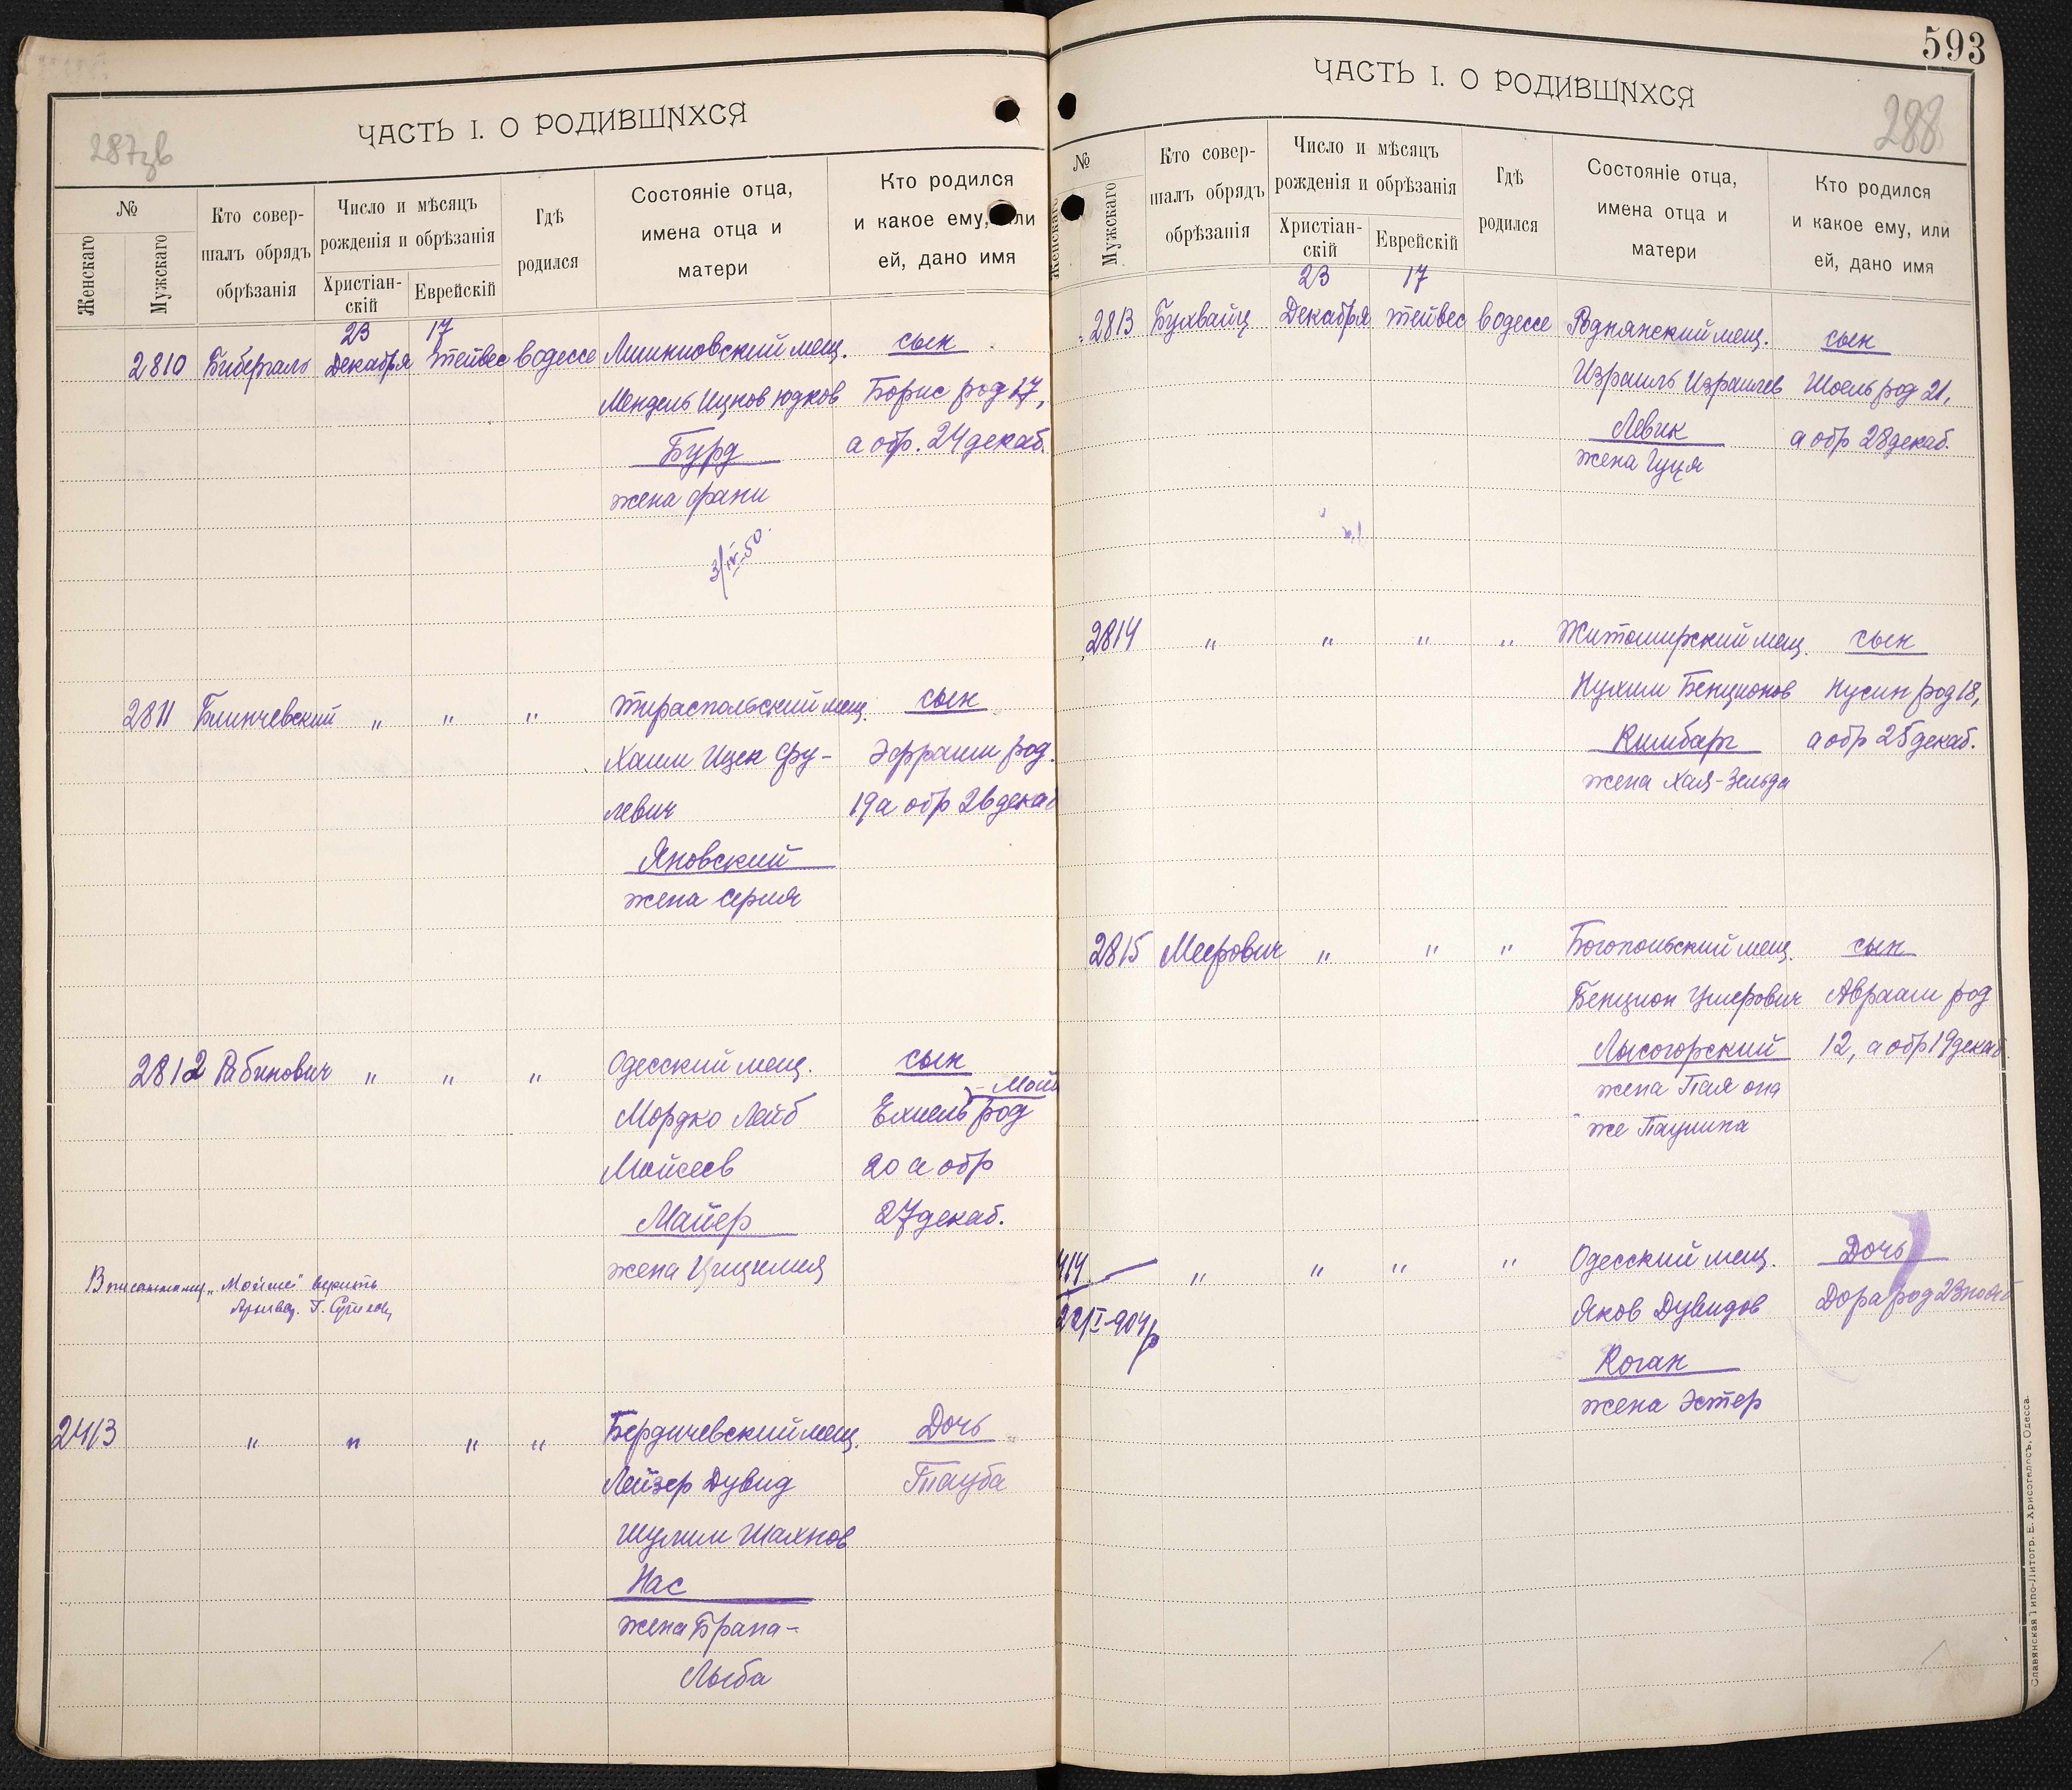 287зв
ЧАСТЬ I. О РОДИВШИХСЯ
№
Женскаго
Мужскаго
Кто совер-
шалъ обрядъ
обрѣзанія
Число и мѣсяцъ
рожденія и обрѣзанія
Христіан-
скій
Еврейскій
Гдѣ
родился
Состояніе отца,
имена отца и
матери
Кто родился
и какое ему, или
ей, дано имя
23 17
2810 Бибергаль Декабря тейвес в одессе мещ. сын
Мендель Ицков Юдков Борис род 17,
Бурд а обр. 24 декаб.
жена Фани
3/IV-50
2811 Блинчевский " " " Тираспольский мещ. сын
Хаим Ицек Фру- Эфраим род.
левич 19 а обр 26 декаб
Яновский
жена Серия
2812 Рабинович " " " Одесский мещ. сын
- Мой
Мордко Лейб Ехиель род
Мойсеев 20 а обр
Майер 27 декаб.
жена
Вписанному „Мойше" верить
2413 " " " " Бердичевский мещ. Дочь
Лейзер Дувид Тауба
Шулим Шахнов
Нас
жена Брана-
Лыба
593
288
ЧАСТЬ I. О РОДИВШИХСЯ
№
Женскаго
Мужскаго
Кто совер-
шалъ обрядъ
обрѣзанія
Число и мѣсяцъ
рожденія и обрѣзанія
Христіан-
скій
Еврейскій
Гдѣ
родился
Состояніе отца,
имена отца и
матери
Кто родился
и какое ему, или
ей, дано имя
23 17
2813 Бухвайц Декабря тейвес в одессе Роднянский мещ. сын
Израиль Израилев Шоель род 21,
Левик а обр 28 декаб.
жена Гуця
2814 " " " " Житомирский мещ. сын
Нухим Бенционов Нусин род 18,
Кимбарг а обр 25 декаб.
жена Хая-Зельда
2815 Меерович " " " Богопольский мещ. сын
Бенцион Ушерович Авраам род
Лысогорский 12, а обр 19 декаб.
жена Пая она
же Паулина
414 " " " " Одесский мещ. Дочь
22/I-904 Яков Дувидов Дора род 23 нояб
Коган
жена Эстер
Славянская Типо-Литогр. Е. Хрисогелосъ, Одесса.